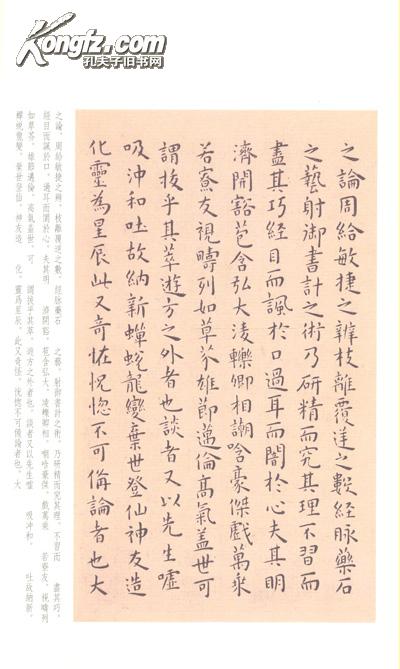 Kongfz.com
孔夫子旧书网
之論周給敏捷之辯枝離覆逆之數經脉藥石
之藝射御書計之術乃研精而究其理不習而
盡其巧經目而諷於口過耳而闇於心夫其明
濟開豁苞含弘大淩轢卿相謿哈豪傑戲萬乘
若寮友視疇列如草芥雄節邁倫高氣盖世可
謂拔乎其萃遊方之外者也談者又以先生噓
吸沖和吐故納新蟬蛻龍變棄世登仙神友造
化靈為星辰此又奇怪恍惚不可俻論者也大
之論，周給敏捷之辯，枝離覆逆之數，經脉藥石 之藝，射御書計之術，乃研精而究其理，不習而 盡其巧，
經目而諷於口，過耳而闇於心。夫其明 濟開豁，苞含弘大，淩轢卿相，謿哈豪傑，戲萬乘 若寮友，視疇列
如草芥，雄節邁倫，高氣蓋世，可 謂拔乎其萃，遊方之外者也。談者又以先生噓 吸沖和， 吐故納新，
蟬蛻龍變，棄世登仙，神友造 化，靈爲星辰。此又奇怪，恍惚不可備論者也。大